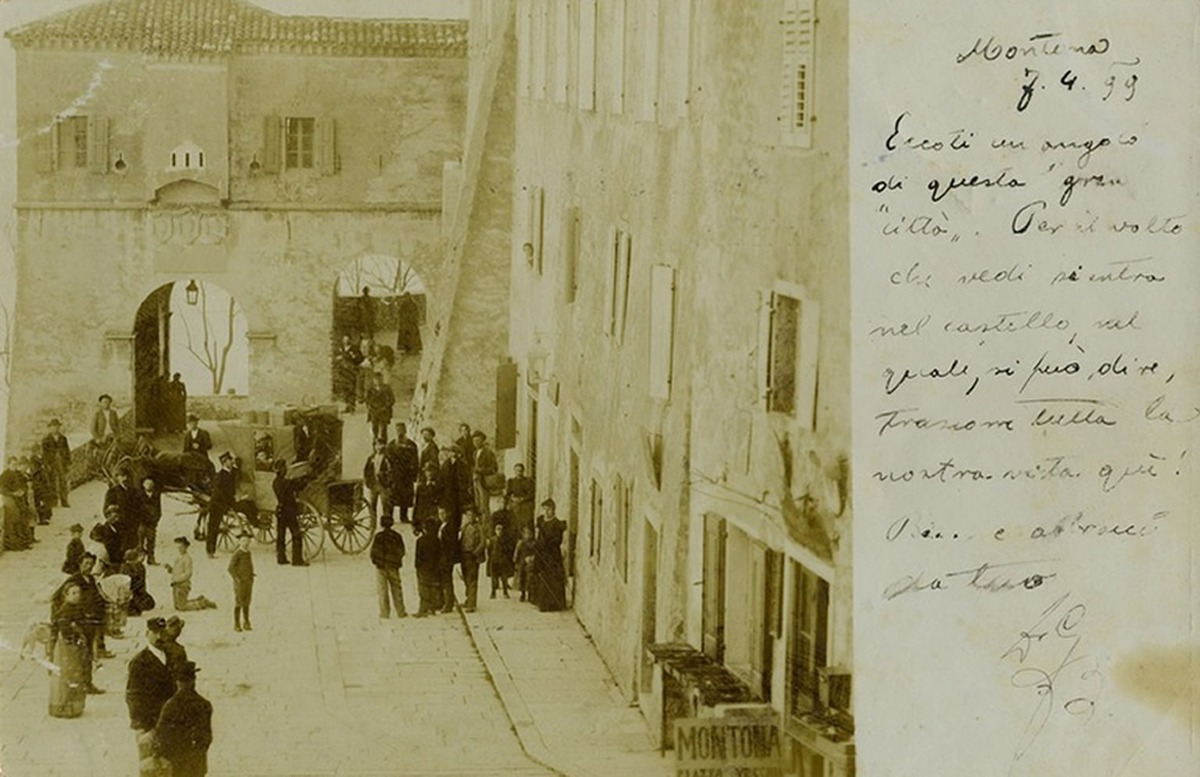 MONTONA
PIAZZA
Montona
7. 4. 99
Eccoti un angolo
di questa gran
"città„. Per il volto
che vedi si entra
nel castello, nel
quale, si può dire,
trascorre tutta la
nostra vita quì!
e abbracci
da tuo